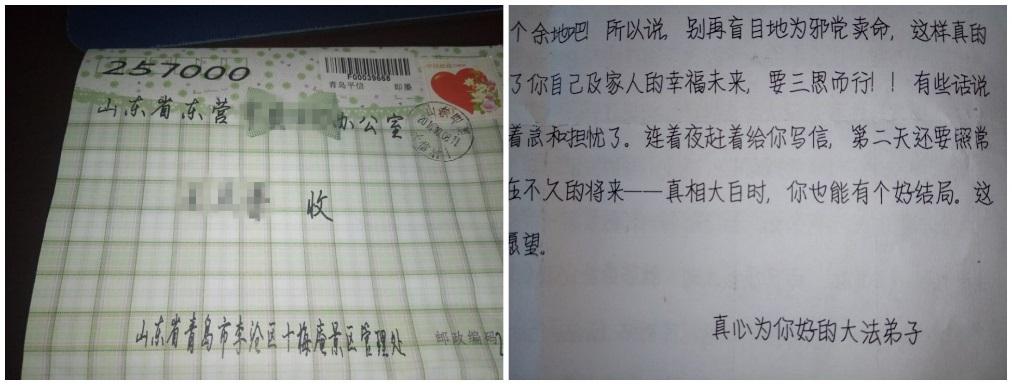 257000
F00039668
青岛平信
即墨
山东省东营
办公室
收
山东省青岛市李沧区十梅庵景区管理处
邮政编码
个余地吧! 所以说, 别再盲目地为邪党卖命, 这样真的
了你自己及家人的幸福未来, 要三思而行!! 有些话说
着急和担忧了。连着夜赶着给你写信, 第二天还要照常
在不久的将来——真相大白时, 你也能有个好结局。这
愿望。
真心为你好的大法弟子